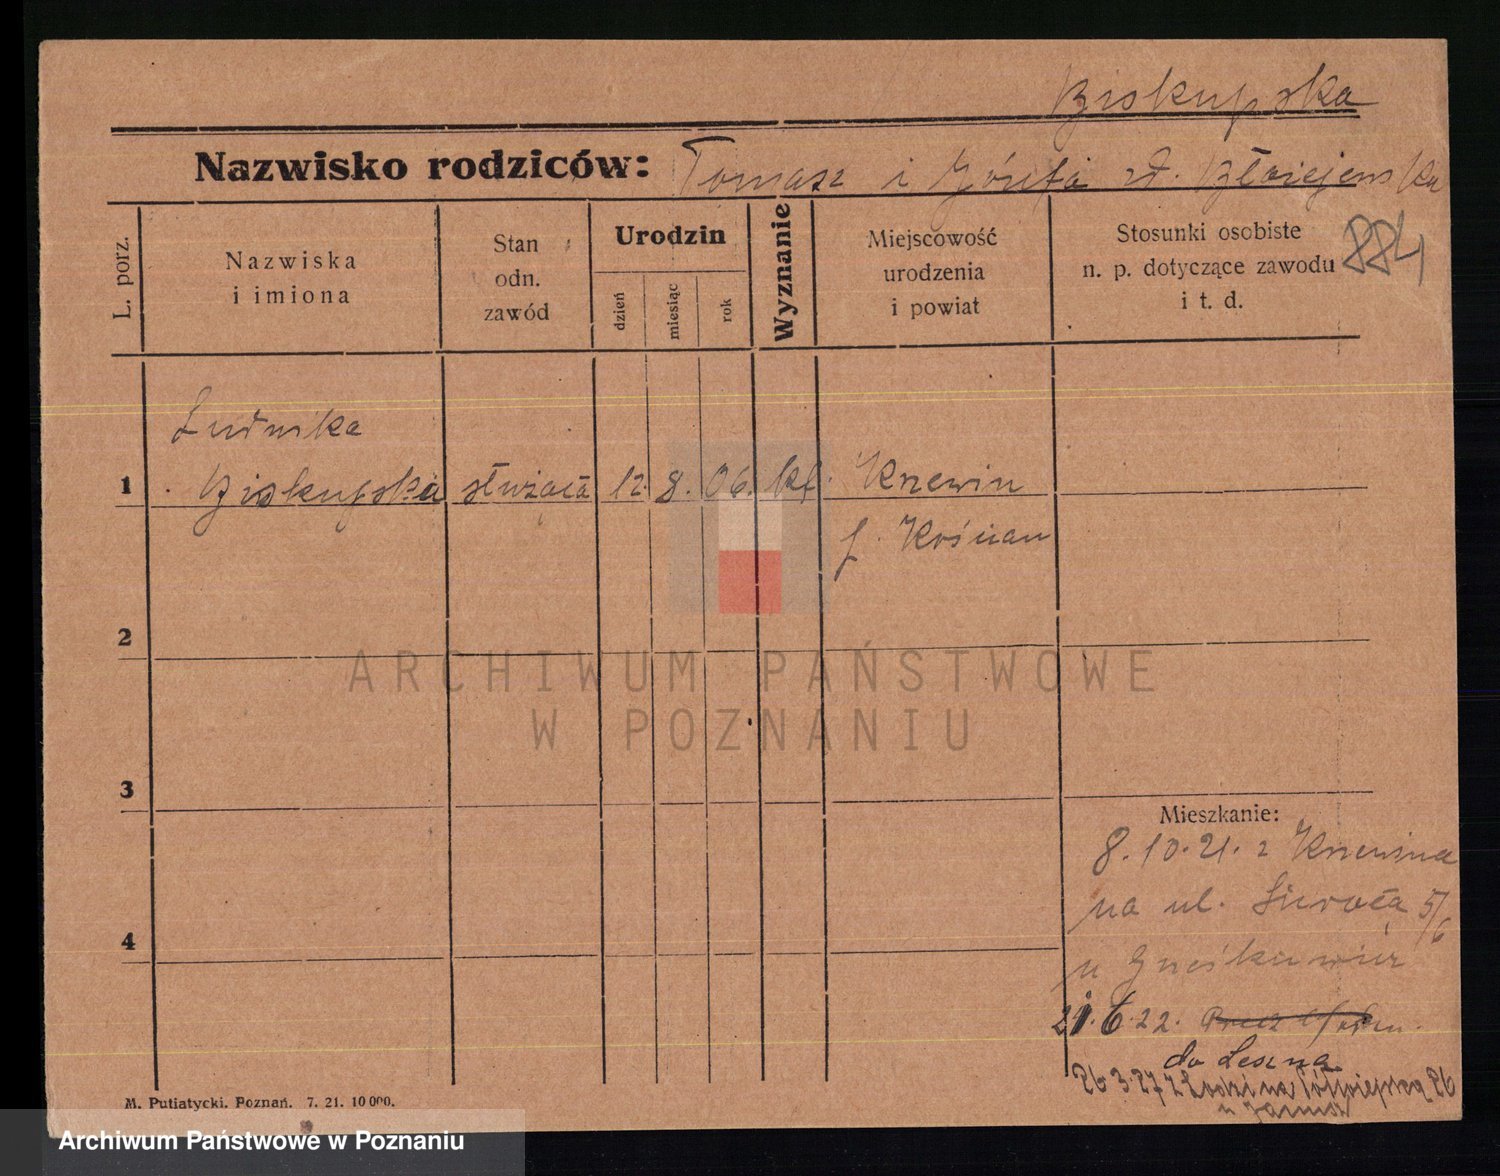 Biskupska
Nazwisko rodziców: Tomasz i Józefa
884
L. porz.
Nazwiska
i imiona
Stan
odn.
zawód
Urodzin
dzień
miesiąc
rok
Wyznanie
Miejscowość
urodzenia
i powiat
Stosunki osobiste
n. p. dotyczące zawodu
i t. d.
Ludwika
1 Biskupska służąca 12. 8. 06. kt. Krzewin
p. Kościan
2
ARCHIWUM PAŃSTWOWE
W POZNANIU
3
Mieszkanie:
8.10.21. z Krzewina
4
na ul. Szeroka 5/6
u
21.6.22.
do Leszna
26 3.27 z Łodzi na 26
u
M. Putiatycki. Poznań. 7. 21. 10000.
Archiwum Państwowe w Poznaniu